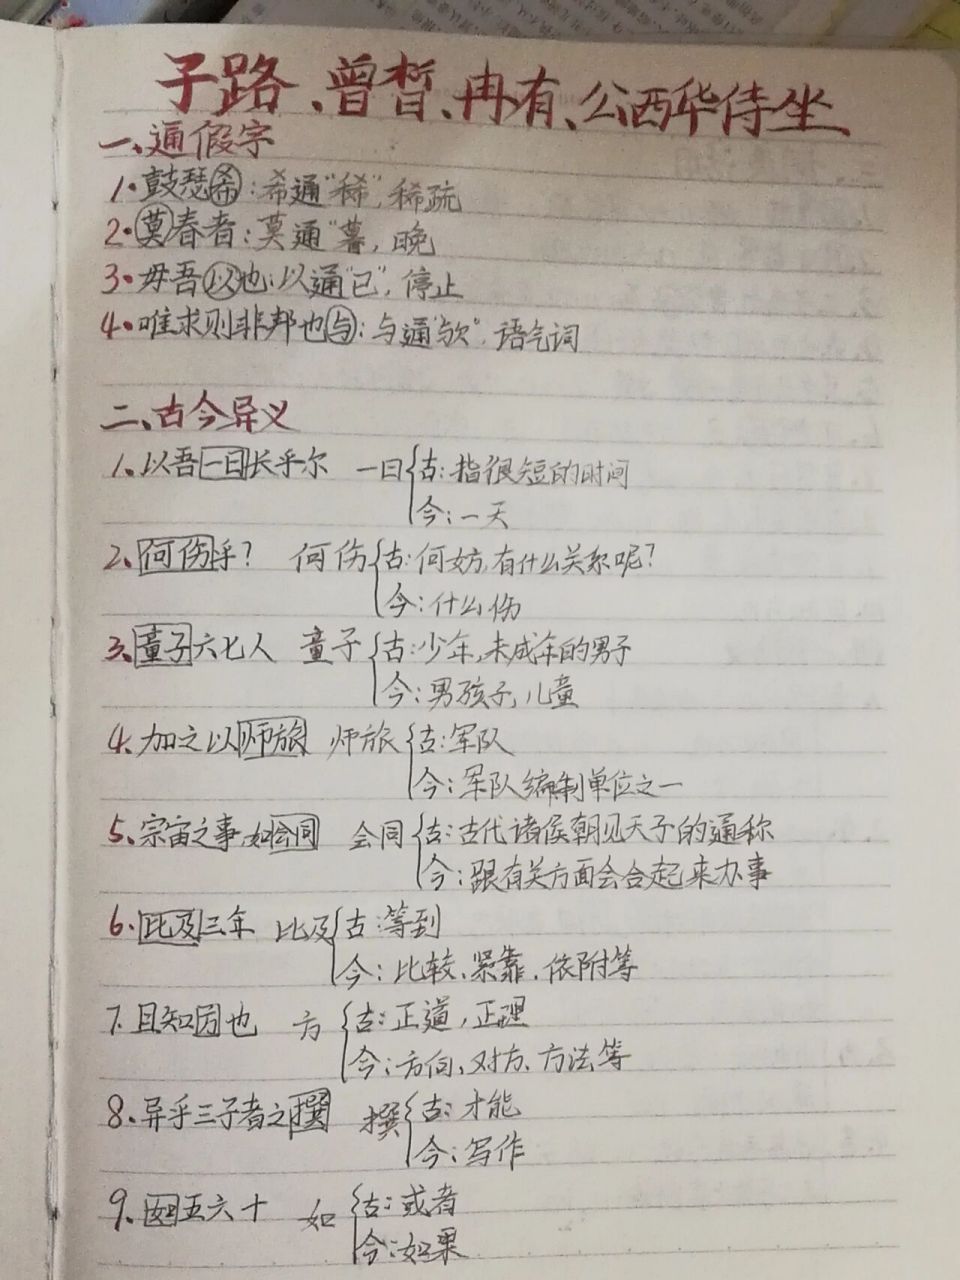 子路、曾皙、冉有、公西华侍坐
一、通假字
1.鼓瑟希:希通"稀",稀疏
2.莫春者:莫通"暮,晚
3.毋吾以也:以通"已",停止
4.唯求则非邦也与:与通"欤",语气词
二、古今异义
1.以吾一日长乎尔 一日 古:指很短的时间
今:一天
2.何伤乎? 何伤 古:何妨,有什么关系呢?
今:什么伤
3.童子六七人 童子 古:少年,未成年的男子
今:男孩子,儿童
4.加之以师旅 师旅 古:军队
今:军队编制单位之一
5.宗宙之事,如会同 会同 古:古代诸侯朝见天子的通称
今:跟有关方面会合起来办事
6.比及三年 比及 古:等到
今:比较、紧靠、依附等
7.且知方也 方 古:正道,正理
今:方向、对方、方法等
8.异乎三子者之撰 撰 古:才能
今:写作
9.如五六十 如 古:或者
今:如果